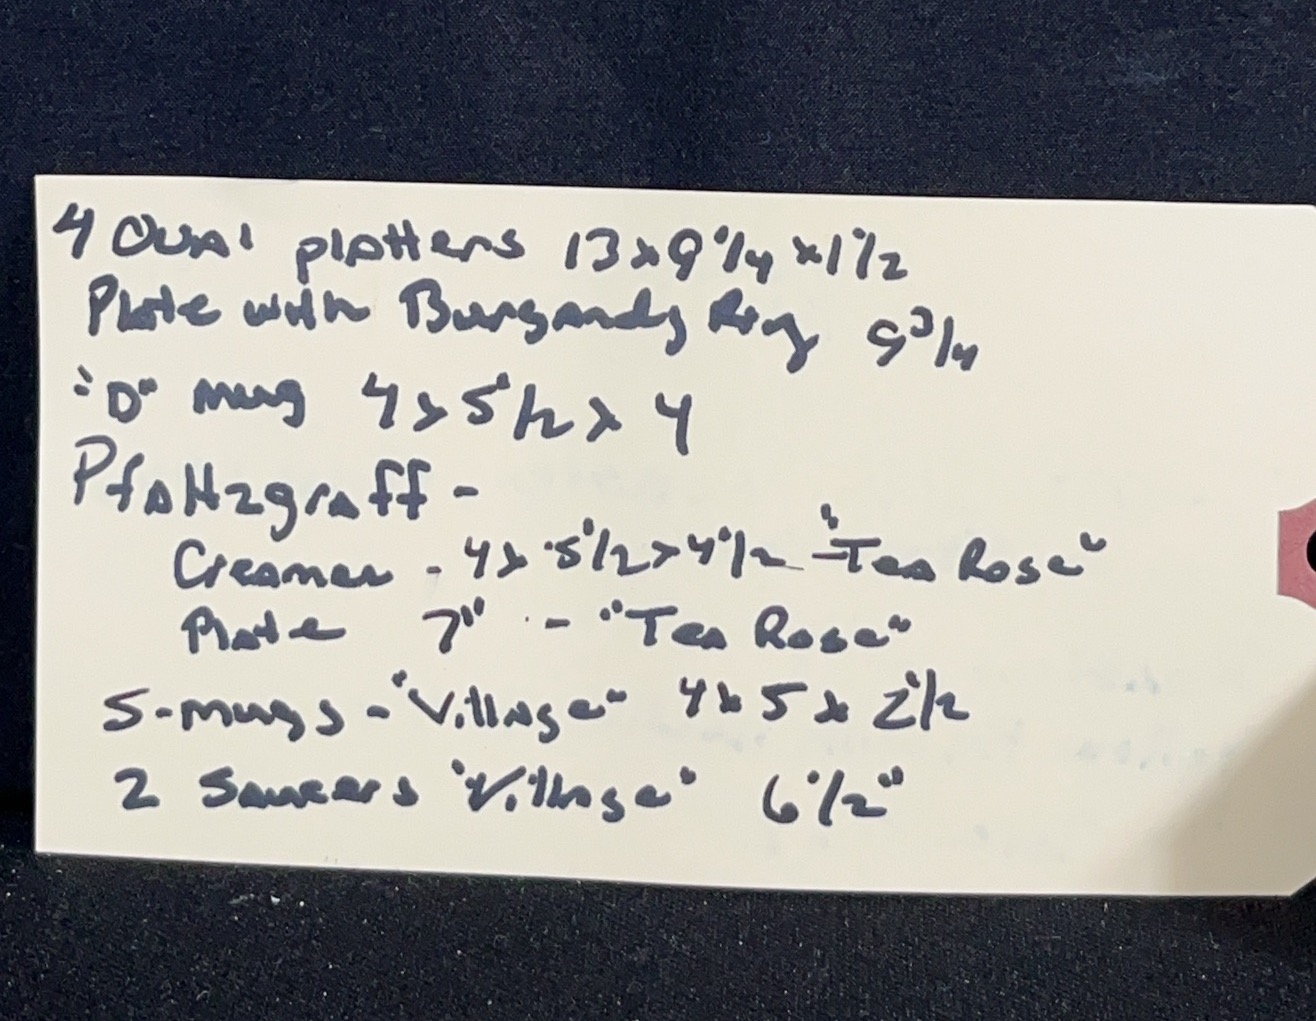 4 Oval platters 13x9 1/4 x 1 1/2
Plate with Burgandy Ring 9 3/4
"D" mug 4 x 5 1/2 x 4
Pfaltzgraff -
Creamer - 4 x 5 1/2 x 4 1/2 - "Tea Rose"
Plate 7" - "Tea Rose"
5-mugs - "Village" 4 x 5 x 2 1/2
2 Saucers "Village" 6 1/2"